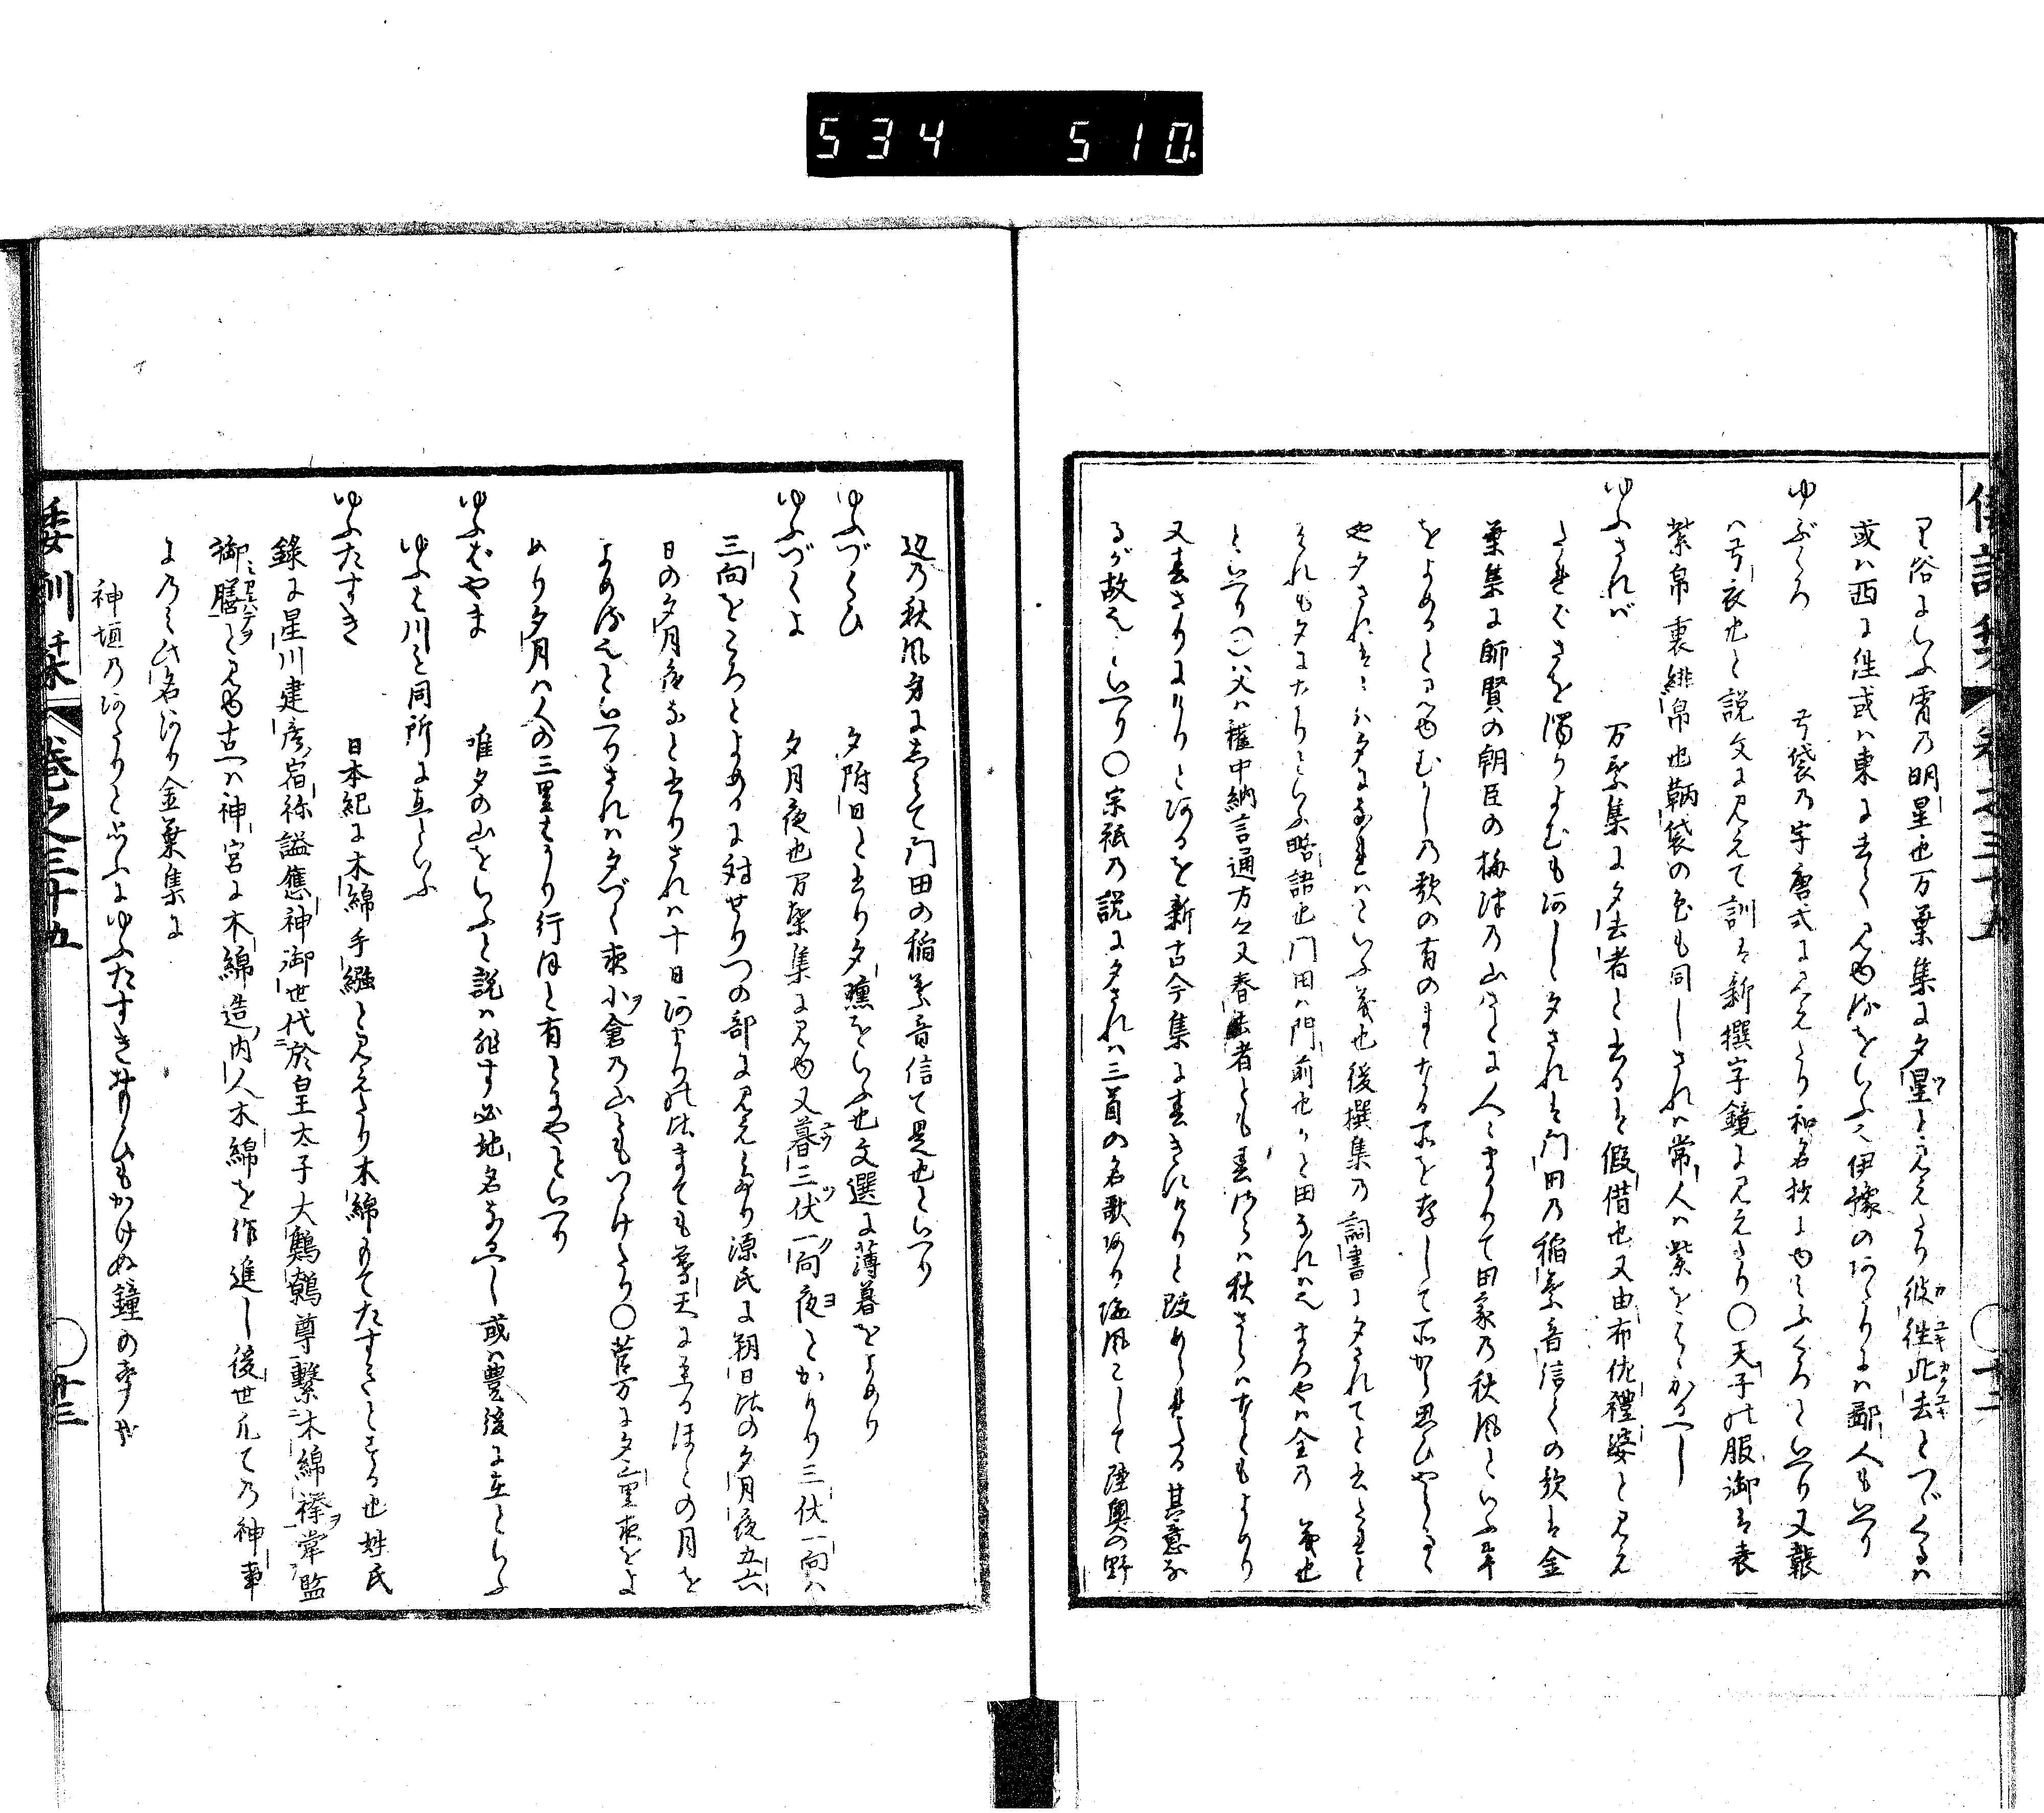 534 510.
倭訓栞 巻之三十五 十二
里俗にいふ宵乃明星也万葉集に夕星と見えたり彼往此去とつゞくるハ
或ハ西に往或ハ東に去て見ゆるをいふ也伊豫のわたりにハ鄙人もいへり
ゆぶくろ 弓袋乃字唐式に見えたり和名抄にゆみふくろといへり又韔
ハ弓衣也と説文に見えて訓は新撰字鏡に見えたり〇天子の服御は表
紫帛裏緋帛也鞆袋の色も同しされハ常人ハ紫をはゝかるへし
ゆふされバ 万葉集に夕去者と書るは假借也又由布佐禮婆と見え
たればさを濁りよむもわろし夕されは門田乃稲葉音信ての歌は金
葉集に師賢の朝臣の梅津乃山さとに人々まかりて田家乃秋風といふ事
をよめるとみゆむかしの歌の有のまゝなる所を存して所から思ひやらるゝ
や夕されはゝ夕になれはといふ義也後撰集乃詞書に夕されてと書たると
それも夕になりといふ略語也門田ハ門前也かと田なれハ也まろやハ全乃義也
といへり(一)ハ父ハ權中納言通方也又春去者とも春されハ秋されハなともよめり
又春さりにけりとあるを新古今集に春きにけりと改められたる其意な
るが故也といへり〇宗祇乃説に夕されハ三首の名歌あり塩風こして陸奥の野
邊乃秋風身にしみて門田の稲葉音信て是也といへり
ゆふづくひ 夕附日と書り夕曛をいふ也文選に薄暮をよめり
ゆふづくよ 夕月夜也万葉集に見ゆ又暮三伏一向夜とかけり三伏一向ハ
三向をころとよめるに対せりつの部に見えたり源氏に朔日比の夕月夜五六
日の夕月夜なと書りされハ十日わまり比まても尊天に至るほとの月を
よめる也といへりされハ夕づく夜小倉乃山ともいつけたり〇菅万に夕三里夜をよ
めり夕月ハ人の三里はかり行ほと有とにやといへり
ゆふばやま 唯夕の山をいふと説ハ非す必地名なるへし或ハ豊後に在といふ
ゆふは川と同所に在といふ
ゆふたすき 日本紀に木綿手繦と見えたり木綿もてたすきとする也姓氏
錄に星川建彦宿祢謚應神御世代於皇太子大鷦鷯尊繋木綿襷掌監
御膳と見ゆ古へハ神宮に木綿造内人木綿を作進し後世凡ての神事
に乃み此名あり金葉集に
神垣乃わたりと思ふにゆふたすき思ひもかけぬ鐘の声哉
倭訓栞 巻之三十五 十三